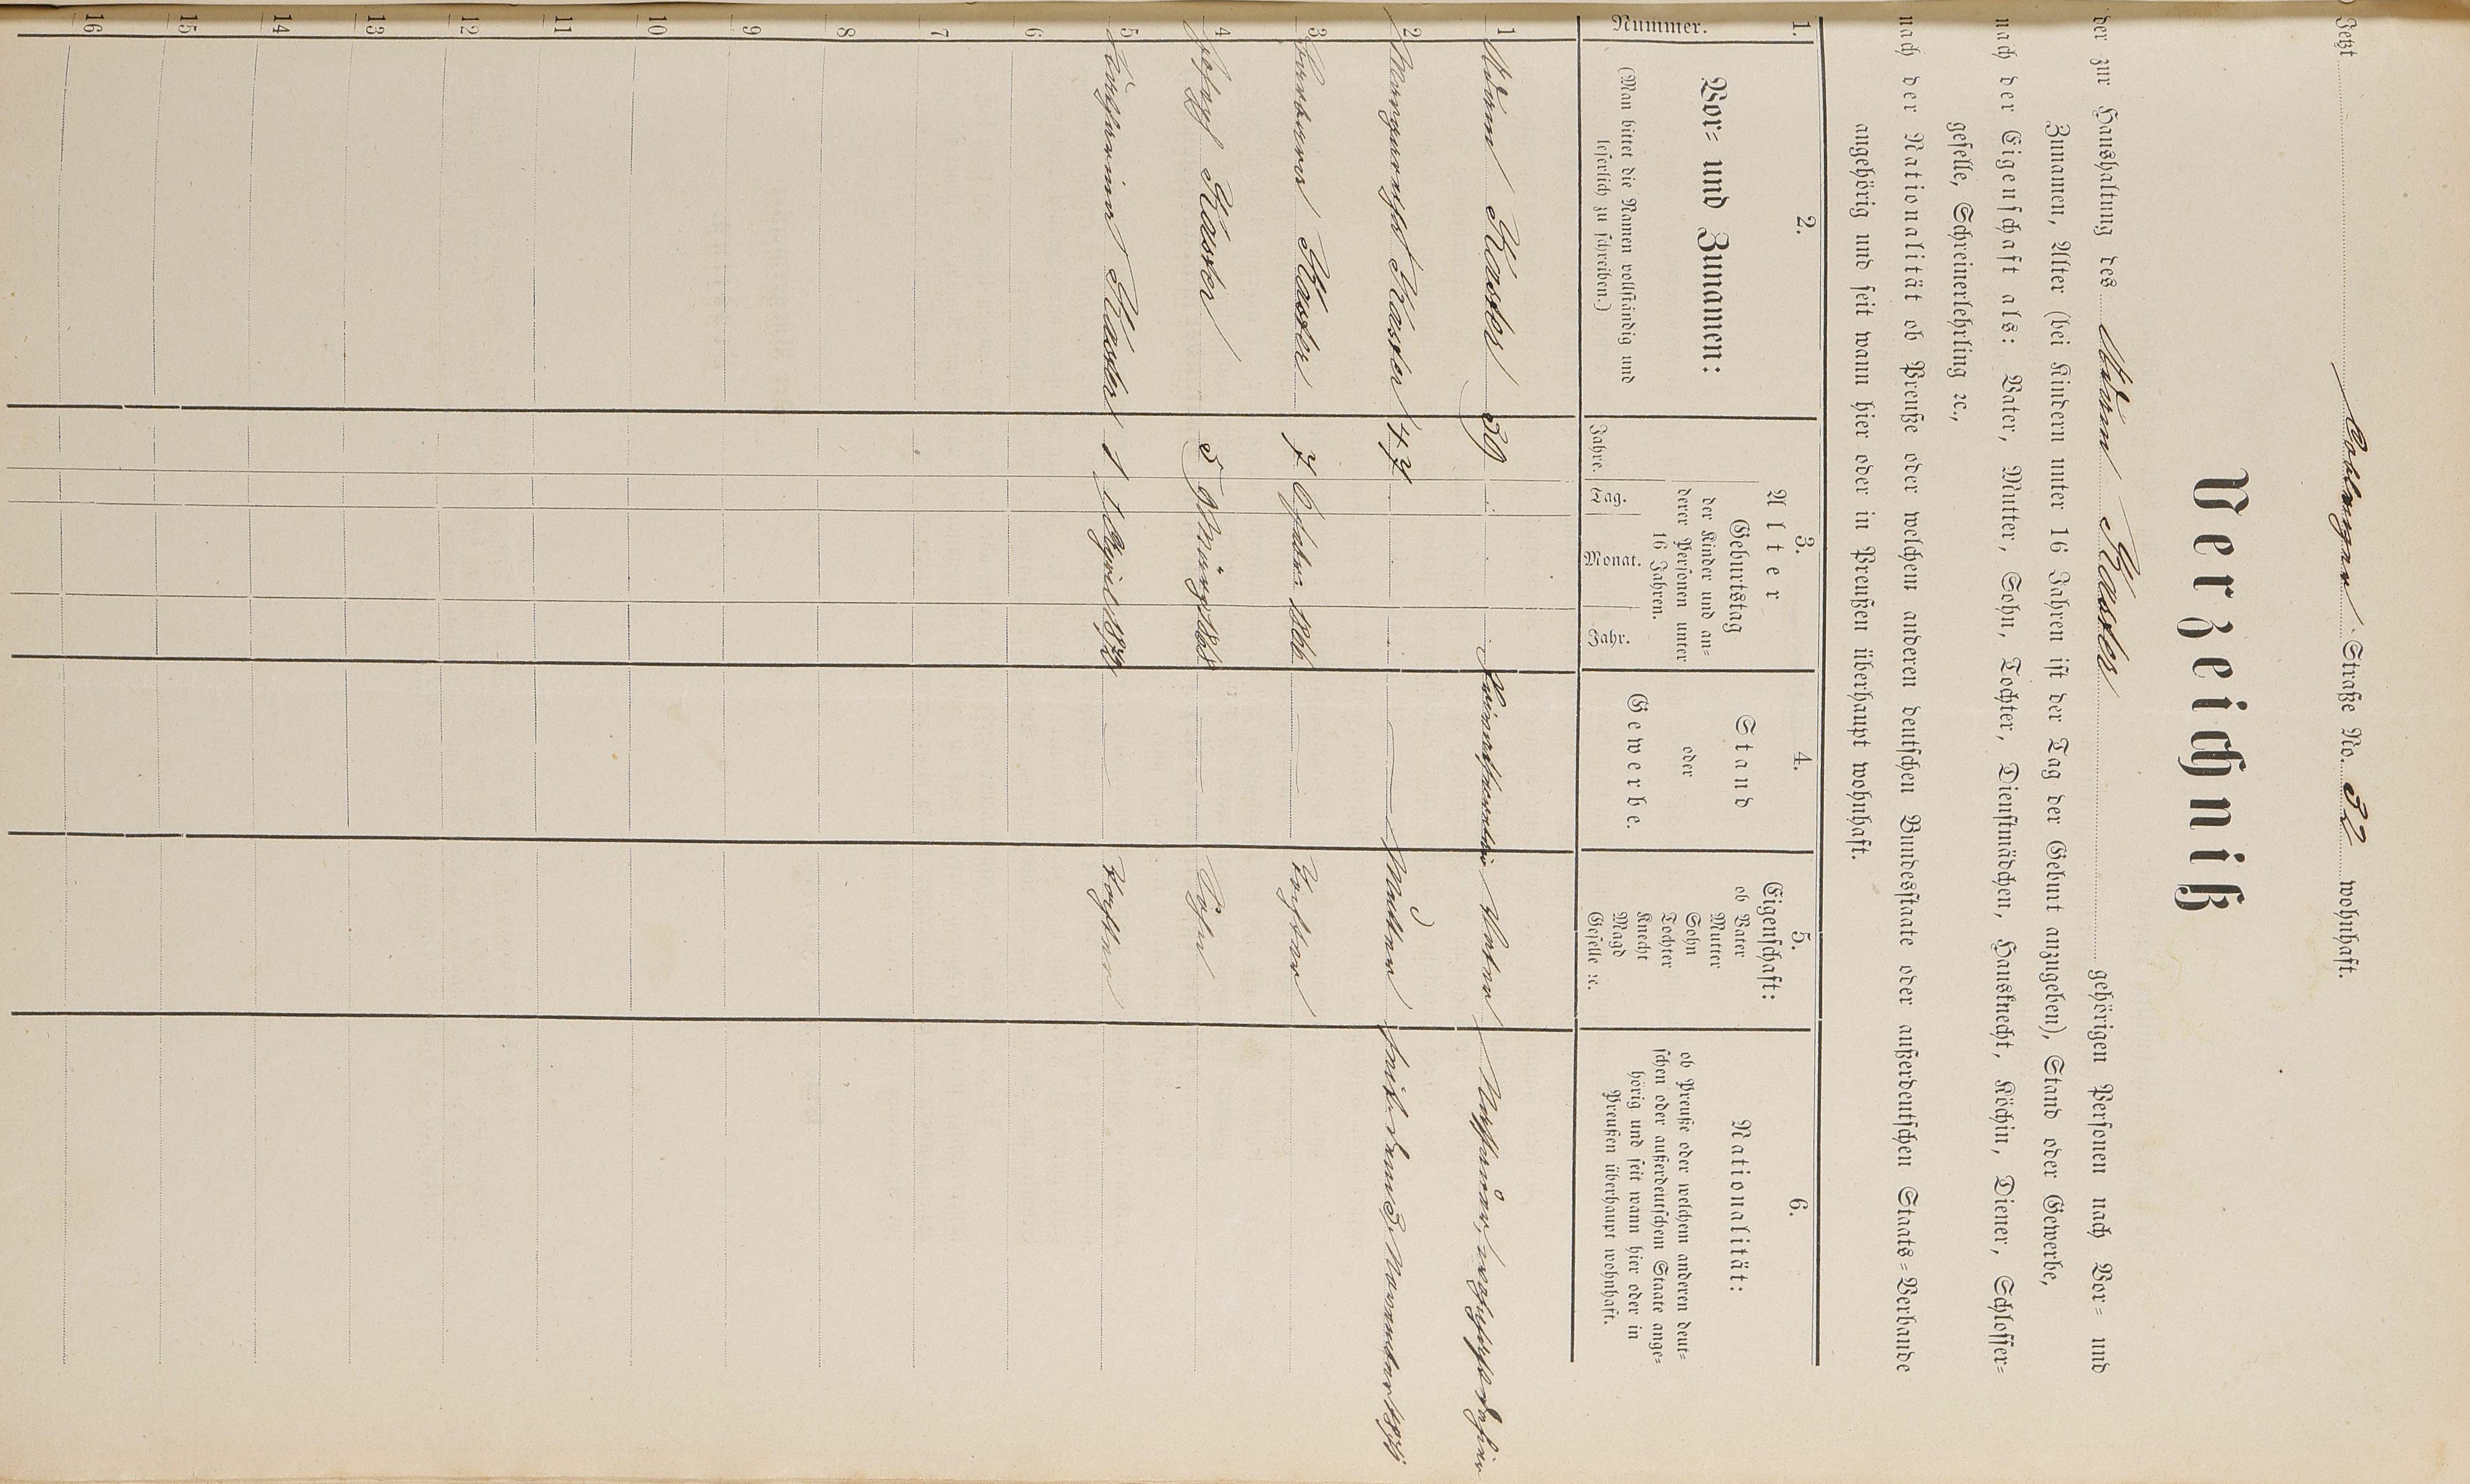 ) Jetzt Coblenzer Straße No. 32 wohnhaft.
Verzeichniß
der zur Haushaltung des Adam Kaster gehörigen Personen nach Vor= und
Zunamen, Alter (bei Kindern unter 16 Jahren ist der Tag der Geburt anzugeben), Stand oder Gewerbe,
nach der Eigenschaft als: Vater, Mutter, Sohn, Tochter, Dienstmädchen, Hausknecht, Köchin, Diener, Schlosser=
geselle, Schreinerlehrling ꝛc.,
nach der Nationalität ob Preuße oder welchem anderen deutschen Bundesstaate oder außerdeutschen Staats=Verbande
angehörig und seit wann hier oder in Preußen überhaupt wohnhaft.
1. 2. 3. 4. 5. 6.
Nummer.
Vor= und Zunamen:
(Man bittet die Namen vollständig und
leserlich zu schreiben.)
Alter
Geburtstag
der Kinder und an=
derer Personen unter
16 Jahren.
Jahre. Tag. Monat. Jahr.
Stand
oder
Gewerbe.
Eigenschaft:
ob Vater
Mutter
Sohn
Tochter
Knecht
Magd
Geselle ꝛc.
Nationalität:
ob Preuße oder welchem anderen deut=
schen oder außerdeutschem Staate ange=
hörig und seit wann hier oder in
Preußen überhaupt wohnhaft.
1 Adam Kaster 39 Vater wohnhaft dahier
2 Margaretha Kaster 42 Mutter seit dem 3. November 1871
3 Barbara Kaster 7 1866 Tochter
4 Joseph Kaster 5 März 1868 Sohn
5 Katharina Kaster 1 1 April 1872 Tochter
6
7
8
9
10
11
12
13
14
15
16